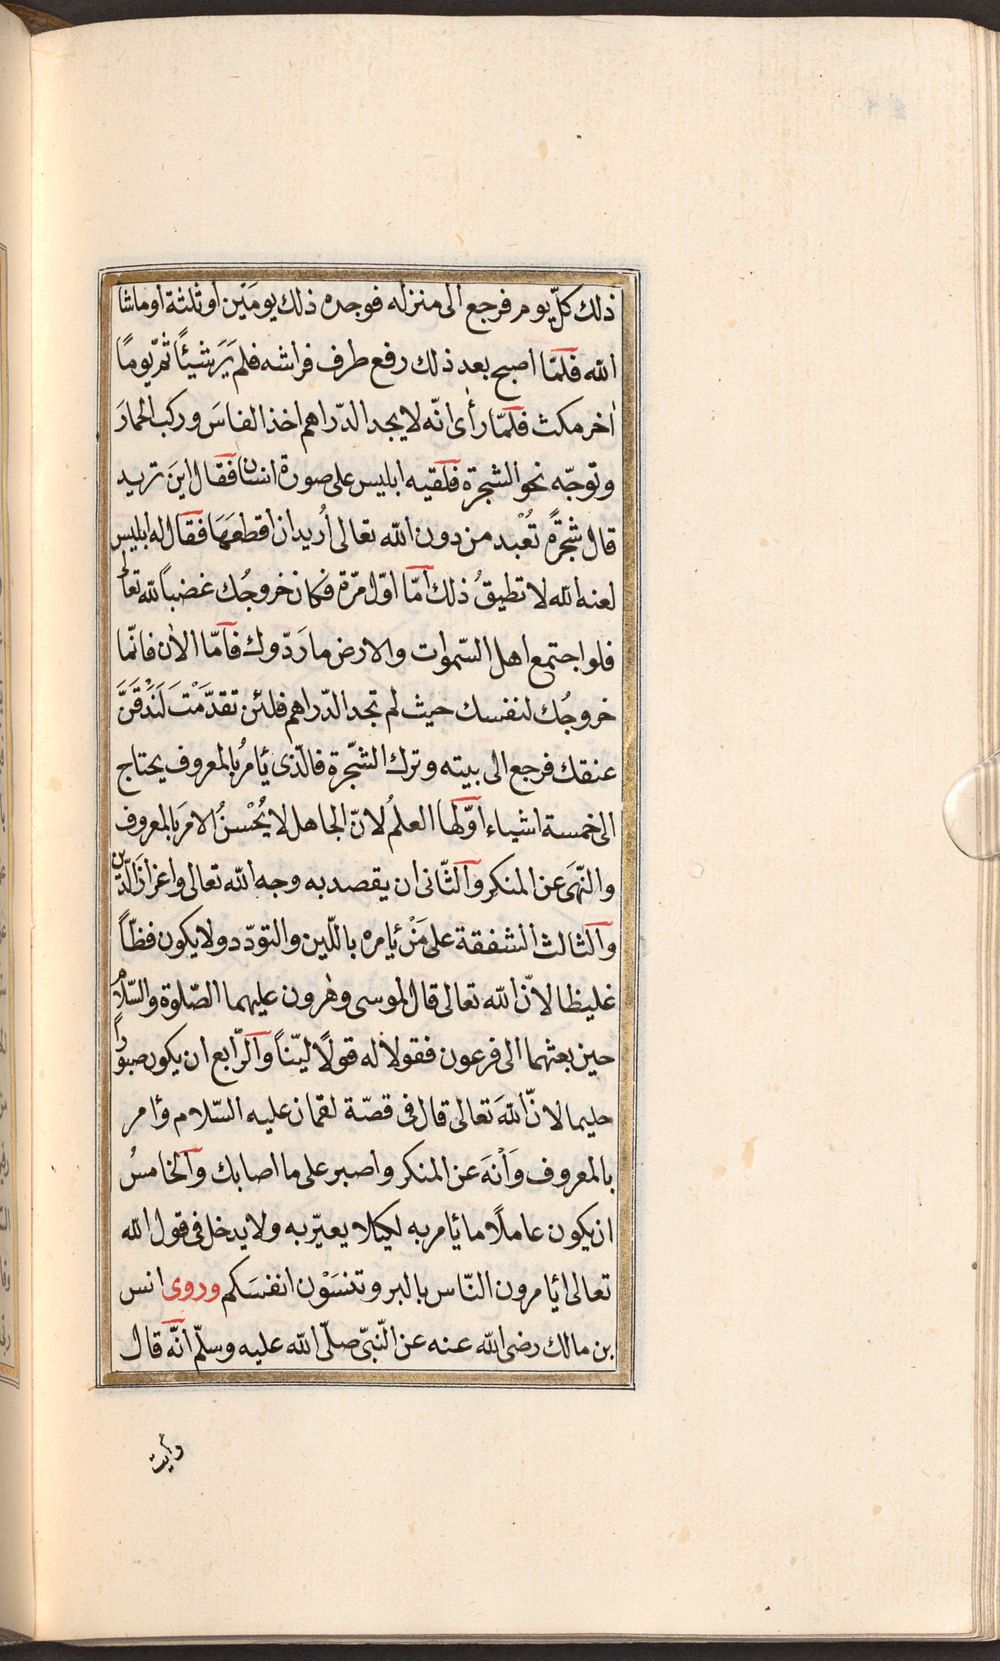 ذلك كلّ يوم فرجع الى منزله فوجده ذلك يومَيْن او ثلثة او ماشا
الله فلمّا اصبح بعد ذلك رفع طرف فراشه فلم يَرَ شيئًا ثمّ يومًا
اٰخر مكث فلمّا رأى انّه لا يجد الدّراهم اخذ الفاسَ وركب الحمارَ
وتوجّه نحو الشجرة فلقيه ابليس على صورة انسان فقال اينَ تريد
قال شجرةً تُعْبد من دون الله تعالى اُريد ان اقطعَهَا فقال له ابليس
لعنه الله لا تطيقُ ذلك امّا اوّل مرّة فكان خروجُك غضباً لله تعالى
فلو اجتمع اهل السّموات والارض ما رَدّوك فامّا الاٰن فانّما
خروجُك لنفسك حيث لم تجد الدّراهم فلئن تقدّمْتَ لَنَدُقَّنَّ
عنقك فرجع الى بيته وترك الشّجرة فالّذى ئامرُ بالمعروف يحتاج
الى خمسة اشياء اوّلها العلمُ لانّ الجاهل لا يُحْسنُ الامرَ بالمعروف
والنّهَى عن المنكر والثّانى ان يقصد به وجه الله تعالى واعزازَ الدّين
والثالث الشفقة على مَنْ ئامره باللّين والتودّد ولا يكون فظّاً
غليظا لانّ الله تعالى قال لموسى وهٰرون عليهما الصّلوة والسّلام
حين بعثهما الى فرعون فقولا له قولًا ليّناً والرّابع ان يكون صبورًا
حليما لانّ اللّهَ تعالى قال فى قصّة لقمان عليه السّلام وٲمر
بالمعروف وَاْنهَ عن المنكر واصبر على ما اصابك والخامسُ
ان يكون عاملًا ما ئامر به لكيلا يعيّر به ولا يدخل فى قول الله
تعالى اٵمرون النّاس بالبر وتنسَوْن انفسَكم وروى انس
بن مالك رضى الله عنه عن النّبىّ صلّى الله عليه وسلّم انّه قال
رأيت